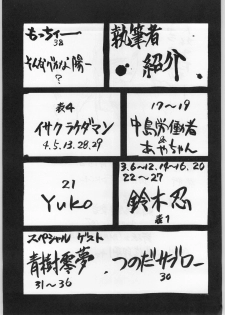 執筆者
紹介
もっちィー
38
そんなバカな陽一
?
17〜19
中島労働者
&
あやちゃん
表4
イサクラケダマン
4.5.13.28.29
3.6〜12.14〜16.20
22〜27
鈴木忍
表1
21
Yuko
スペシャル ゲスト
青樹零夢
31〜36
つのだサブロー
30